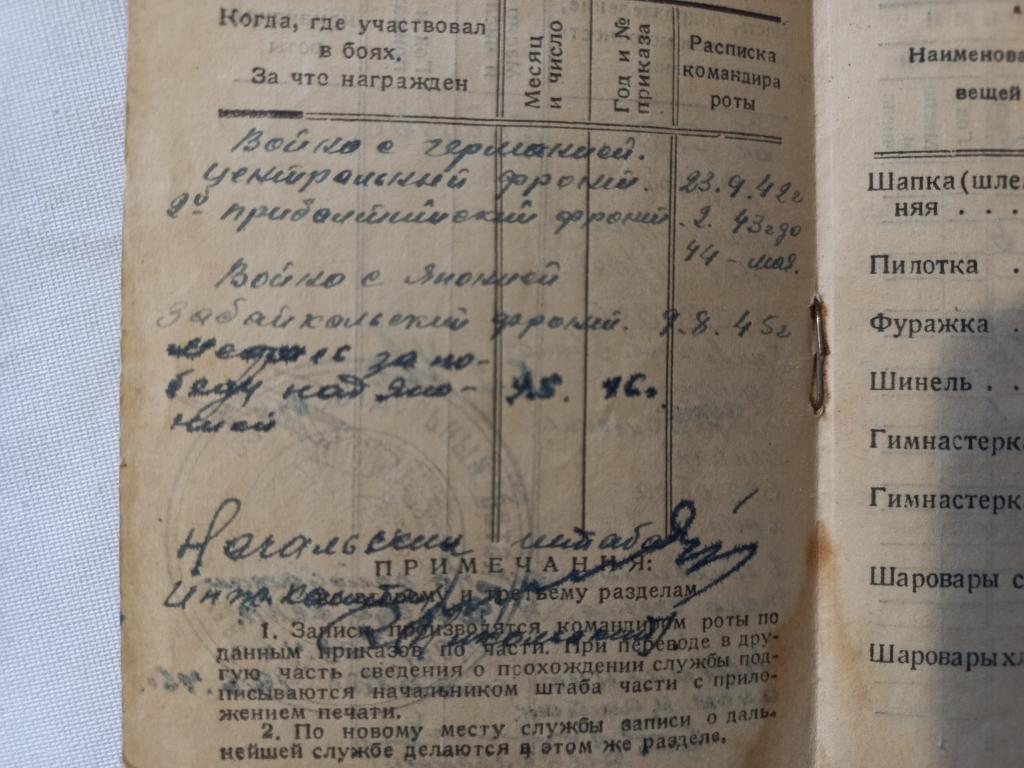 Когда, где участвовал
в боях.
За что награжден
Месяц
и число
Год и №
приказа
Расписка
командира
роты
Война с германией.
Центральный фронт. 23.9.42г
2й прибалтийский фронт. 2. 43г до
44 - мая.
Война с Японией
Забайкальский фронт. 9.8.45г
за по-
беду над япо- 45. 46г
нией
Начальник штаба
ПРИМЕЧАНИЯ:
ко второму и третьему разделам
1. Записи производятся командиром роты по
данным приказов по части. При переводе в дру-
гую часть сведения о прохождении службы под-
писываются начальником штаба части с прило-
жением печати.
2. По новому месту службы записи о даль-
нейшей службе делаются в этом же разделе.
Наименова
вещей
Шапка (шле
няя . . .
Пилотка .
Фуражка .
Шинель . .
Гимнастерка
Гимнастерк
Шаровары с
Шаровары хл